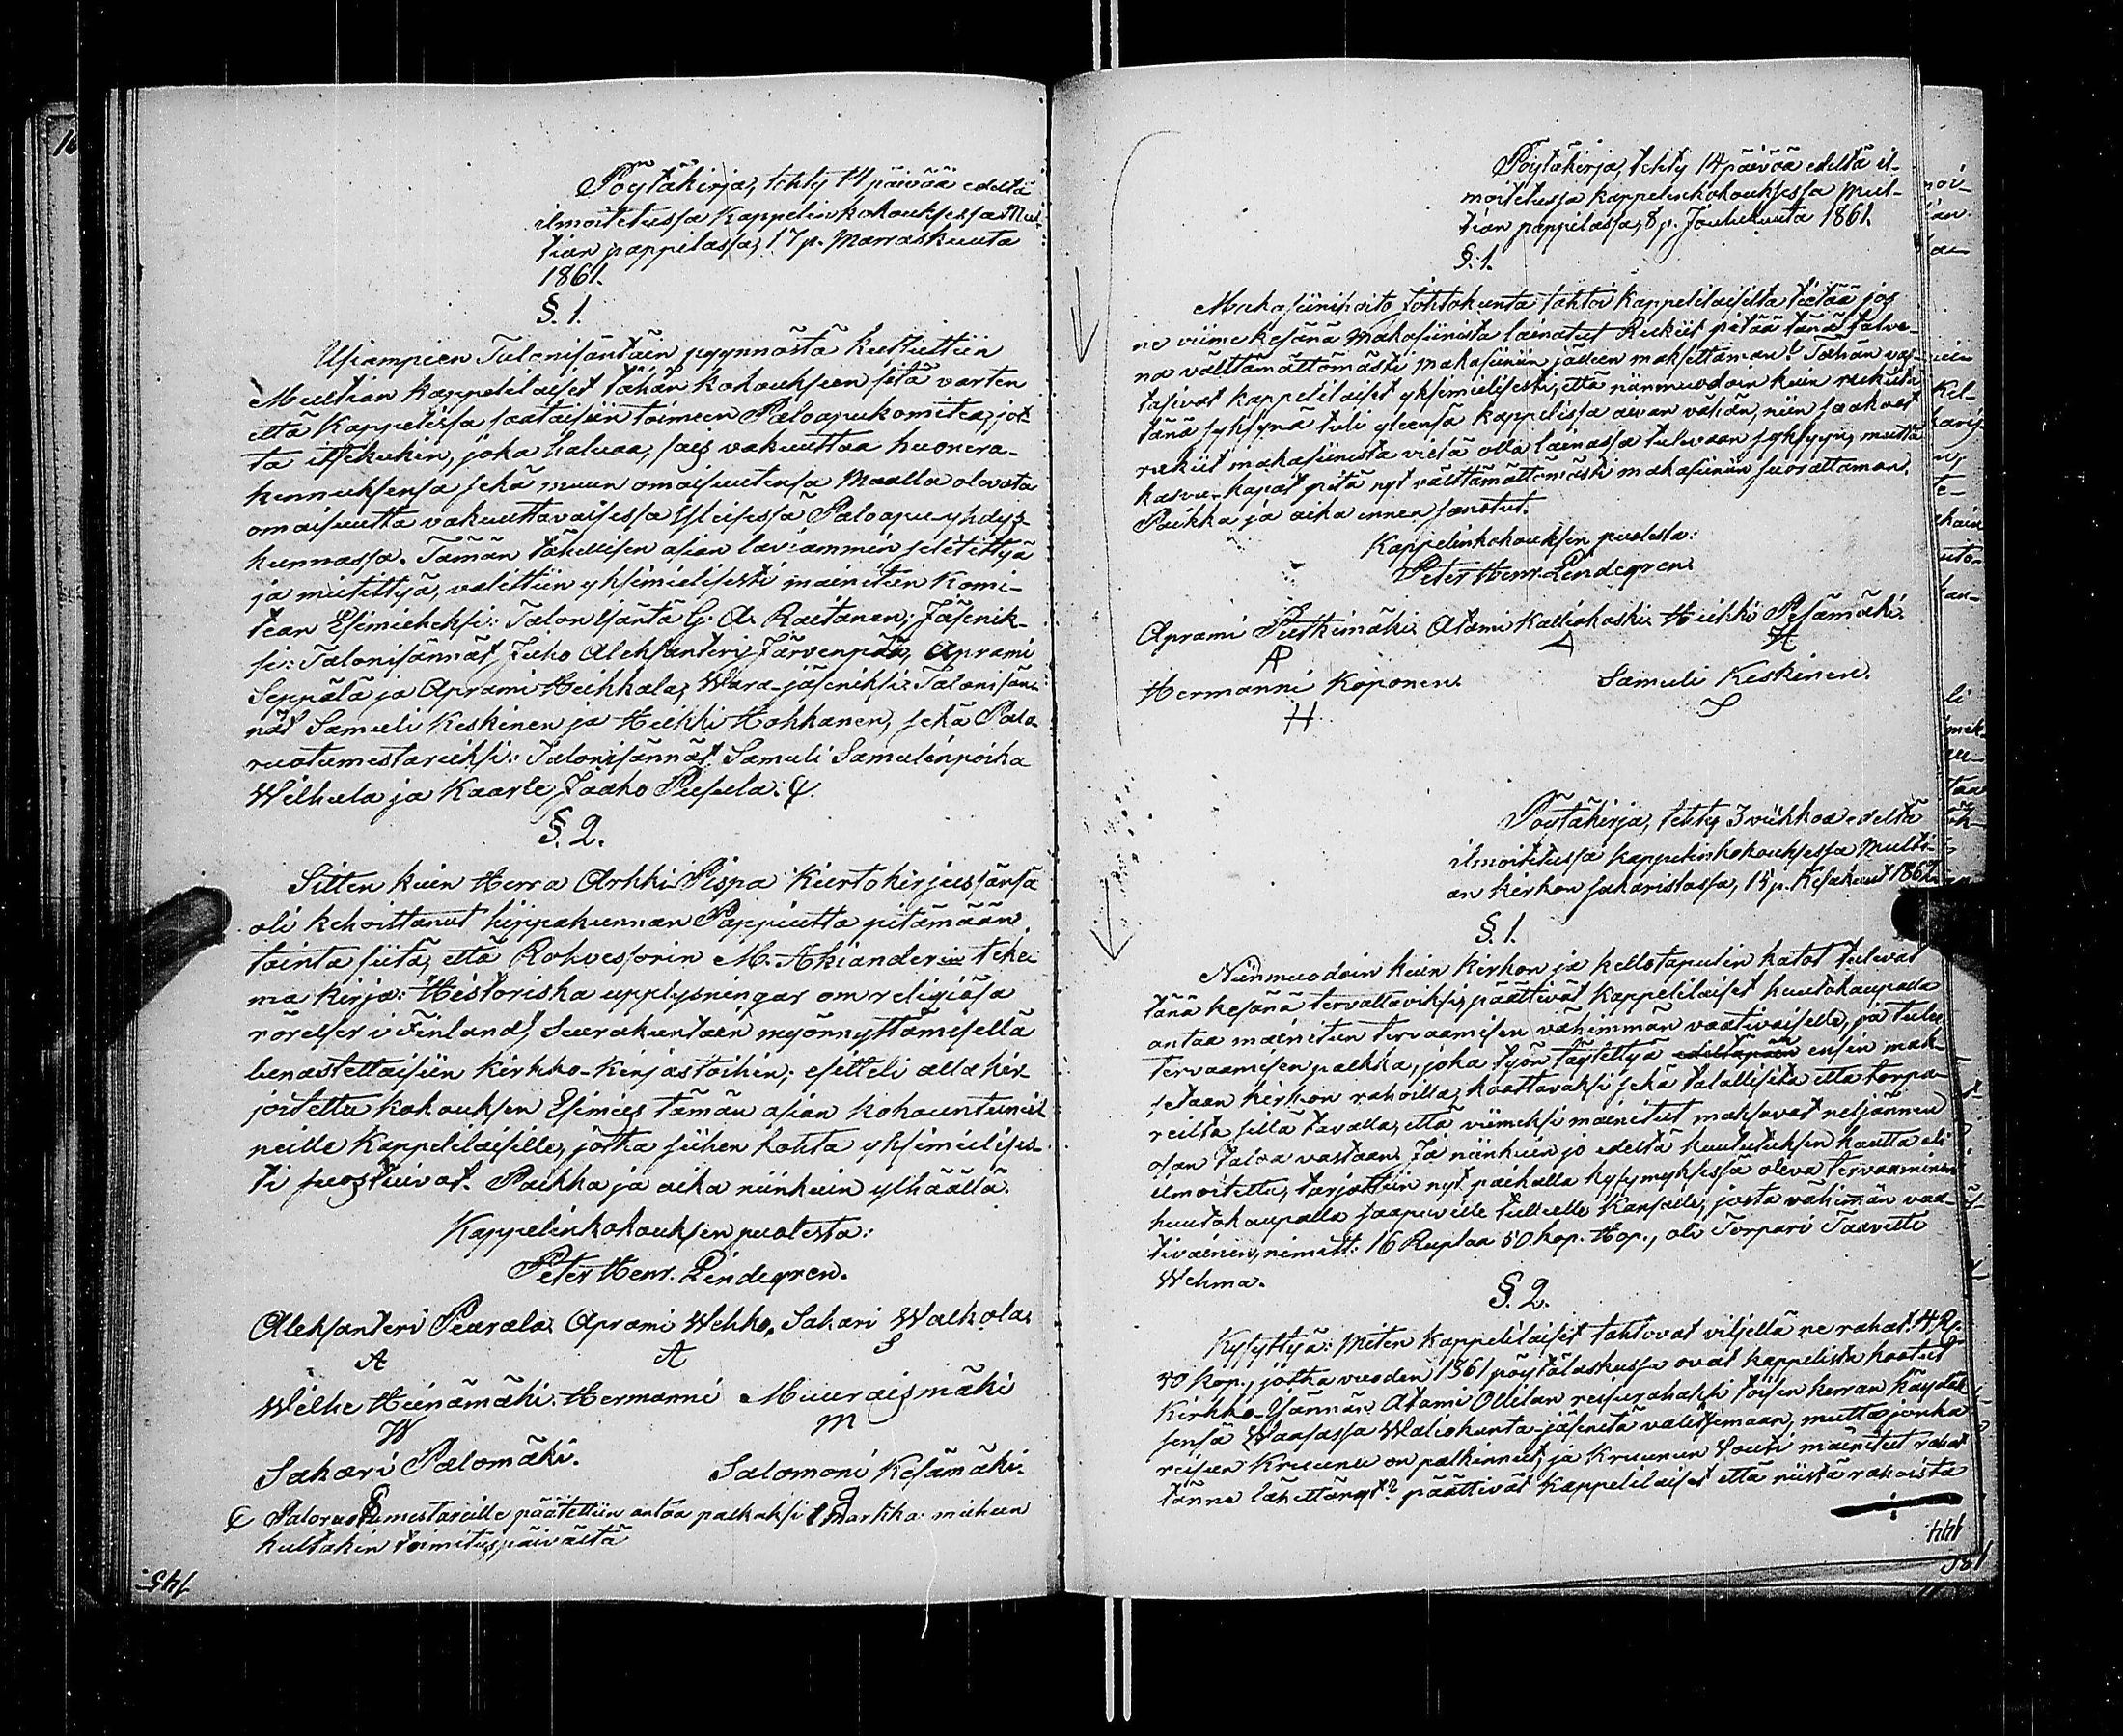 Pöytäkirja, tehty 14 päivää edeltä
ilmoitetussa Kappelinkokouksessa Mul-
tian pappilassa, 17 p. Marraskuuta
1861.
§. 1.
Usiampien Talonisäntäin pyynnöstä kutsuttiin
Multian Kappelilaiset tähän kokoukseen sitä varten
että Kappelissa saataisiin toimeen Paloapukomitea, jot-
ta itsekukin, joka haluaa, sais vakuuttaa huonera-
kennuksensa sekä muun omaisuutensa Maalla olevata
omaisuutta vakuuttavaisessa Yleisessä Paloapu-yhdys-
kunnassa. Tämän tähellisen asian laviammin selitettyä
ja mietittyä, valittiin yksimielisesti mainitun Komi-
tean Esimieheksi: Talon Isäntä G. A. Rautanen; Jäsenik-
si: Talonisännät Juho Aleksanteri Järvenpää, Aprami
Seppälä ja Aprami Heikkala; Wara-jäseniksi: Talonisän-
nät Samuli Keskinen ja Heikki Hokkanen, sekä Palo-
ruotumestariksi: Talonisännät Samuli Samulinpoika
Wilhula ja Kaarle Jaako Pusula.
§. 2.
Sitten kuin Herra Arkki-Pispa Kiertokirjeissänsä
oli kehoittanut hippakunnan Pappiutta pitämään
tointa siitä, että Rohvessorin M. Akiander'in teke-
mä kirja: Historiska upplysningar om religiösa
rörelser i Finland, Seurakuntain myönnyttämisellä
lunastettaisiin Kirkko-Kirjastoihin; esitteli alla kir-
joitettu Kokouksen Esimies tämän asian kokountuneil
neille Kappelilaisille, jotka siihen kohta yksimielises-
ti suostuivat. Paikka ja aika niinkuin ylhäällä.
Kappelinkokouksen puolesta:
Peter Henr. Lindegren.
Aleksanteri Peurala. Aprami Wehko. Sakari Walkola.
A A S
Wilhe Heinämäki. Hermanni Muuraismäki
W M
Sakari Palomäki. Salomoni Kesämäki.
S S
Paloruotumestareille päätettiin antaa palkaksi 1 Markka mieheen
kultakin toimituspäivältä
145.
Pöytäkirja, tehty 14 päivää edeltä il-
moitetussa Kappelinkokouksessa Mul-
tian pappilassa, 8 p. Joulukuuta 1861.
§. 1.
Makasiinihoito Johtokunta tahtoi Kappelilaisilta tietää jos
ne viime kesänä Makasiinista lainatut Rukiit pitää tänä talve-
na välttämättömästi makasiiniin jälleen maksettaman? Tähän vas-
tasivat Kappelilaiset yksimielisesti, että niinmuodoin kuin rukiita
tänä syksynä tuli yleensä Kappelissa aivan vähän, niin saakoot
rukiit makasiinista vielä olla lainassa tulevaan syksyyn, mutta
kasvu-kapat pitä nyt välttämättömästi makasiiniin suorattaman.
Paikka ja aika ennen sanotut.
Kappelinkokouksen puolesta:
Peter Henr. Lindegren
Aprami Putkimäki. Atami Kalliokoski. Heikki Pesämäki.
AP A H
Hermanni Koponen. Samuli Keskinen.
H S
Pöytäkirja, tehty 3 viikkoa edeltä
ilmoitetussa Kappelinkokouksessa Multi-
an kirkon sakaristassa, 15 p. Kesäkuut 1862.
§. 1.
Niinmuodoin kuin Kirkon ja kellotapulin katot tulevat
tänä kesänä tervattaviksi, päättivät Kappelilaiset huutokaupalla
antaa mainitun tervaamisen vähimmän vaativaiselle, ja tulee
tervaamisen palkka, joka työn täytettyä ensin mak-
setaan kirkon rahoilla, koottavaksi sekä talollisilta että torpa-
reilta sillä tavalla, että viimeksi mainitut maksavat neljännen
osan taloa vastaan. Ja niinkuin jo edeltä kuulutuksen kautta oli
ilmoitettu, tarjottiin nyt paikalla kysymyksessä oleva tervaaminen
huutokaupalla saapuville tulleelle Kansalle, josta vähimmän vaa-
tivainen, nimitt: 16 Ruplaa 50 kop. Hop., oli Torpari Taavetti
Wehma.
§. 2.
Kysyttyä: Miten Kappelilaiset tahtovat viljellä ne rahat: 4 R.
50 kop., jotka vuoden 1861 pöytälaskussa ovat kappelista kootut
Kirkko-Isännän Atami Ollilan reissurahaksi toisen kerran käydäk
sensä Waasassa Waliokunta-jäseniä valitsemaan, mutta jonka
reissun Kruunu on palkinnut, ja Kruunun Vouti mainitut rahat
tänne lähettänyt? päättivät Kappelilaiset että niistä rahoista
144.